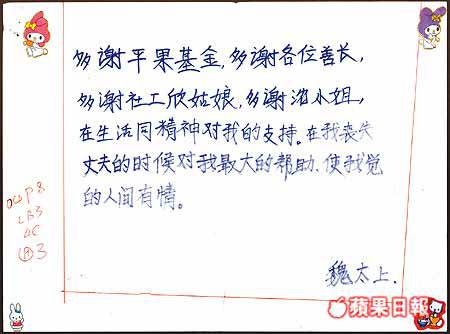 多谢平果基金,多谢各位善长,
多谢社工欣姑娘,多谢小姐,
在生活同精神对我的支持。在我丧失
丈夫的时候对我最大的帮助.使我觉
的人间有情。
魏太上.
蘋果日報